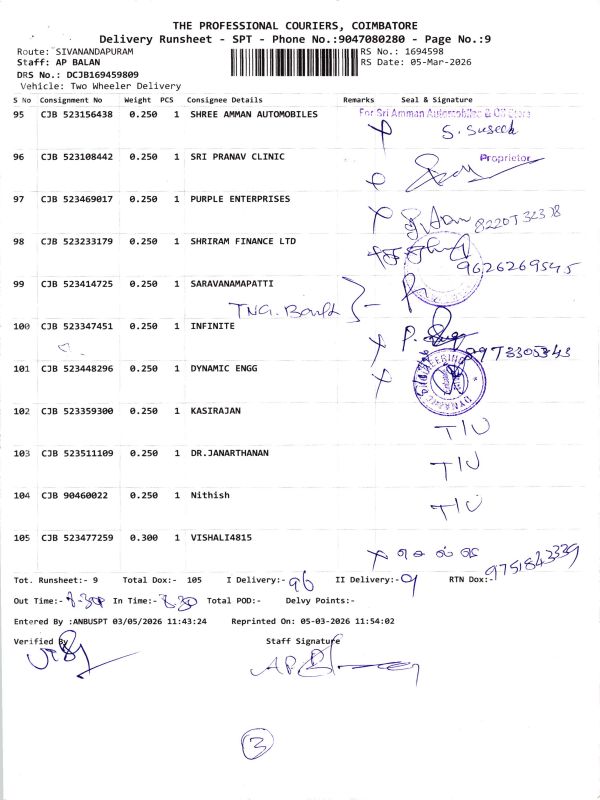 THE PROFESSIONAL COURIERS, COIMBATORE
Delivery Runsheet - SPT - Phone No.:9047080280 - Page No.:9
Route: SIVANANDAPURAM RS No.: 1694598
Staff: AP BALAN RS Date: 05-Mar-2026
DRS No.: DCJB169459809
Vehicle: Two Wheeler Delivery
S No Consignment No Weight PCS Consignee Details Remarks Seal & Signature
95 CJB 523156438 0.250 1 SHREE AMMAN AUTOMOBILES For Sri Amman Automobiles & Oil Store
S. Suseek
96 CJB 523108442 0.250 1 SRI PRANAV CLINIC Proprietor
97 CJB 523469017 0.250 1 PURPLE ENTERPRISES
98 CJB 523233179 0.250 1 SHRIRAM FINANCE LTD
9626269545
99 CJB 523414725 0.250 1 SARAVANAMAPATTI
TNG.
100 CJB 523347451 0.250 1 INFINITE
101 CJB 523448296 0.250 1 DYNAMIC ENGG
102 CJB 523359300 0.250 1 KASIRAJAN T/U
103 CJB 523511109 0.250 1 DR.JANARTHANAN T/U
104 CJB 90460022 0.250 1 Nithish T/U
105 CJB 523477259 0.300 1 VISHALI4815
9751843339
Tot. Runsheet:- 9 Total Dox:- 105 I Delivery:- 96 II Delivery:- 9 RTN Dox:-
Out Time:- 8.30 In Time:- 8.30 Total POD:- Delvy Points:-
Entered By :ANBUSPT 03/05/2026 11:43:24 Reprinted On: 05-03-2026 11:54:02
Verified By Staff Signature
3